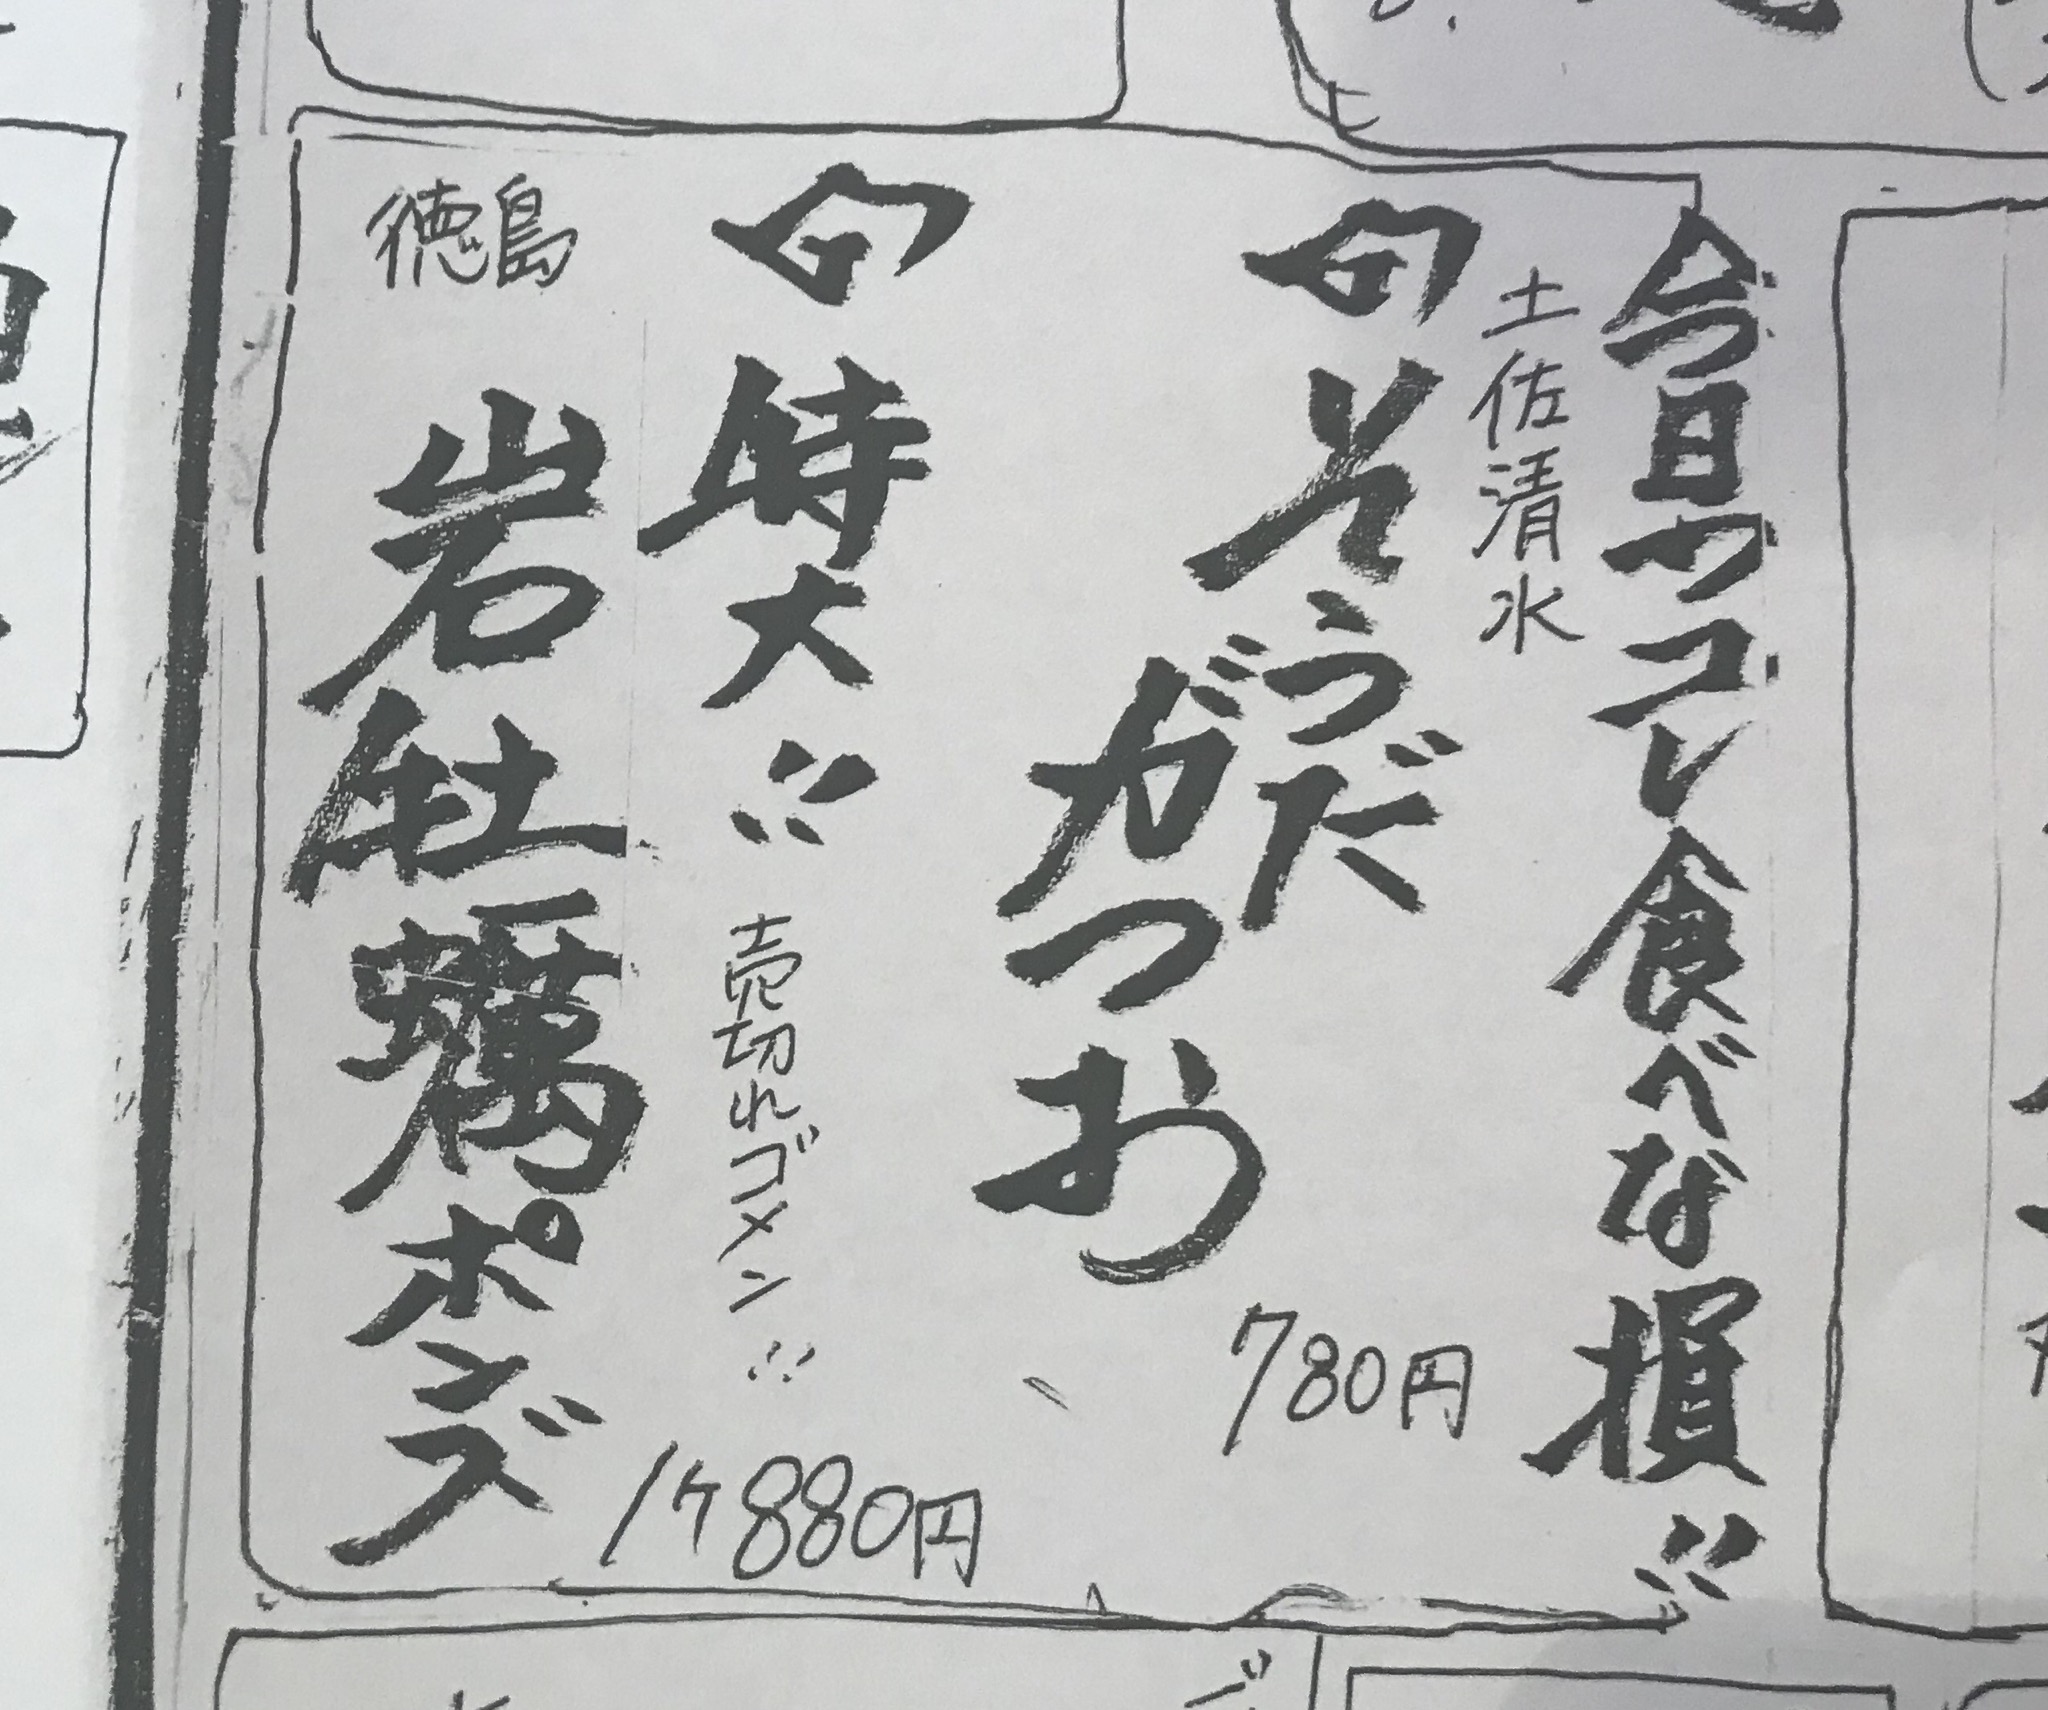 今日つコレ食べな損!!
土佐清水
そうだ
がつお
780円
特大!!
売切れゴメン!!
1ケ880円
徳島
岩牡蠣ポンズ